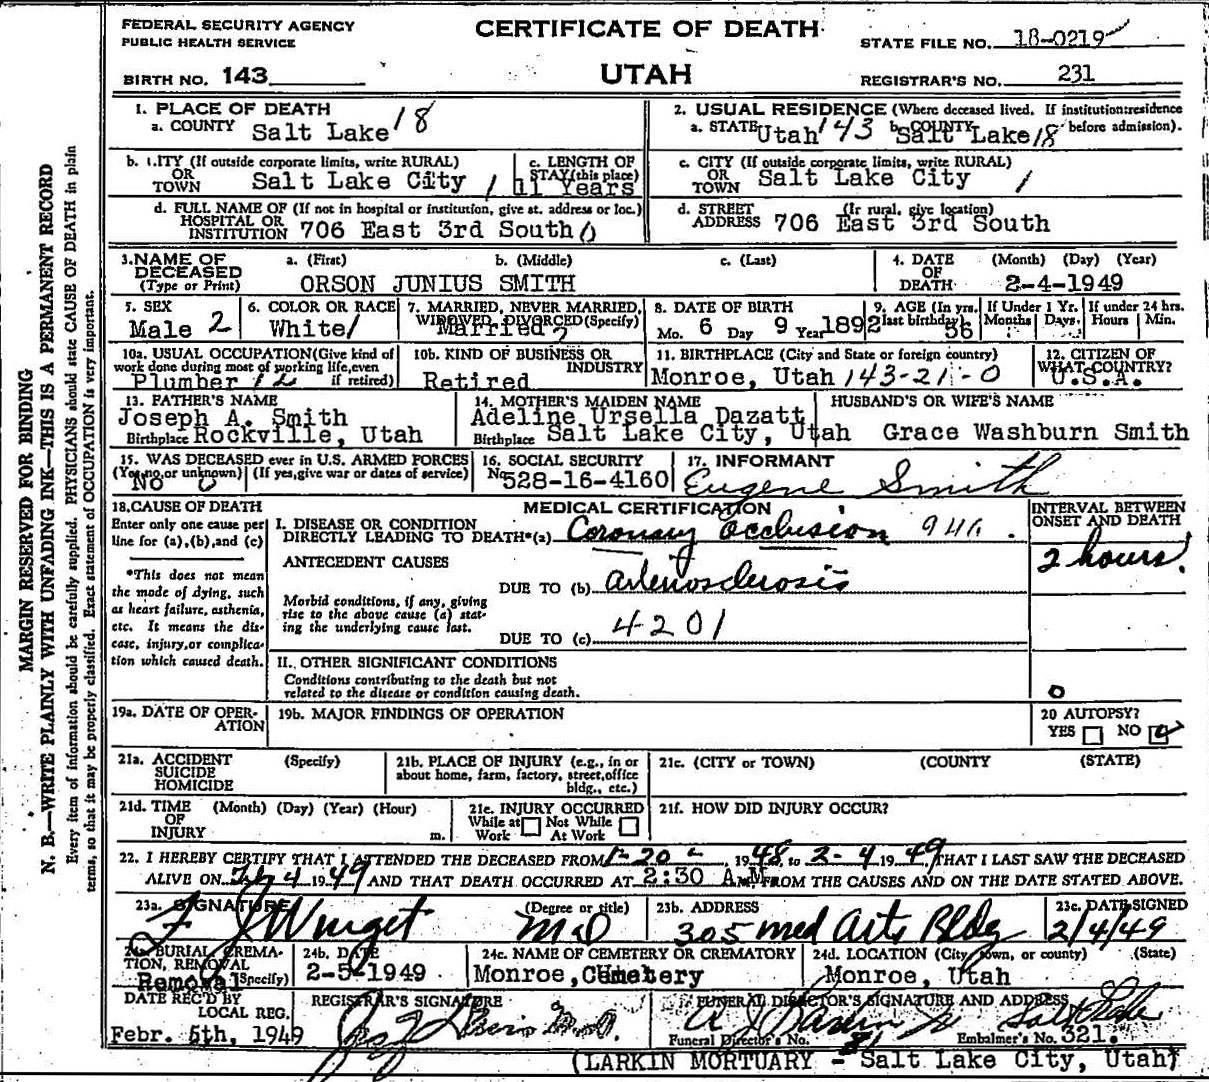 FEDERAL SECURITY AGENCY
PUBLIC HEALTH SERVICE
CERTIFICATE OF DEATH
STATE FILE NO. 18-0219
BIRTH NO. 143
UTAH
REGISTRAR'S NO. 231
MARGIN RESERVED FOR BINDING
N. B.—WRITE PLAINLY WITH UNFADING INK—THIS IS A PERMANENT RECORD
Every item of information should be carefully supplied. PHYSICIANS should state CAUSE OF DEATH in plain
terms, so that it may be properly classified. Exact statement of OCCUPATION is very important.
1. PLACE OF DEATH
a. COUNTY Salt Lake 18
2. USUAL RESIDENCE (Where deceased lived. If institution:residence
before admission).
a. STATE Utah 143 b. COUNTY Salt Lake 18
b. CITY (If outside corporate limits, write RURAL)
OR
TOWN Salt Lake City 1
c. LENGTH OF
STAY (this place)
11 Years
c. CITY (If outside corporate limits, write RURAL)
OR
TOWN Salt Lake City 1
d. FULL NAME OF (If not in hospital or institution, give st. address or loc.)
HOSPITAL OR
INSTITUTION 706 East 3rd South 0
d. STREET (If rural, give location)
ADDRESS 706 East 3rd South
3. NAME OF
DECEASED
(Type or Print)
a. (First) b. (Middle) c. (Last)
ORSON JUNIUS SMITH
4. DATE
OF
DEATH
(Month) (Day) (Year)
2-4-1949
5. SEX
Male 2
6. COLOR OR RACE
White 1
7. MARRIED, NEVER MARRIED,
WIDOWED, DIVORCED (Specify)
Married 2
8. DATE OF BIRTH
Mo. 6 Day 9 Year 1892
9. AGE (In yrs.
last birthday)
56
If Under 1 Yr.
Months Days
If under 24 hrs.
Hours Min.
10a. USUAL OCCUPATION (Give kind of
work done during most of working life, even
if retired)
Plumber 12
10b. KIND OF BUSINESS OR
INDUSTRY
Retired
11. BIRTHPLACE (City and State or foreign country)
Monroe, Utah 143-21-0
12. CITIZEN OF
WHAT COUNTRY?
U.S.A.
13. FATHER'S NAME
Joseph A. Smith
Birthplace Rockville, Utah
14. MOTHER'S MAIDEN NAME
Adeline Ursella Dazatt
Birthplace Salt Lake City, Utah
HUSBAND'S OR WIFE'S NAME
Grace Washburn Smith
15. WAS DECEASED ever in U.S. ARMED FORCES
(Yes, no, or unknown) (If yes, give war or dates of service)
No 0
16. SOCIAL SECURITY
No. 528-16-4160
17. INFORMANT
Eugene Smith
18. CAUSE OF DEATH
Enter only one cause per
line for (a), (b), and (c)
*This does not mean
the mode of dying, such
as heart failure, asthenia,
etc. It means the dis-
ease, injury, or complica-
tion which caused death.
MEDICAL CERTIFICATION
INTERVAL BETWEEN
ONSET AND DEATH
I. DISEASE OR CONDITION
DIRECTLY LEADING TO DEATH*(a) Coronary Occlusion
2 hours
ANTECEDENT CAUSES
DUE TO (b) arteriosclerosis
Morbid conditions, if any, giving
rise to the above cause (a) stat-
ing the underlying cause last.
DUE TO (c) 4201
II. OTHER SIGNIFICANT CONDITIONS
Conditions contributing to the death but not
related to the disease or condition causing death.
0
19a. DATE OF OPER-
ATION
19b. MAJOR FINDINGS OF OPERATION
20 AUTOPSY?
YES NO
21a. ACCIDENT (Specify)
SUICIDE
HOMICIDE
21b. PLACE OF INJURY (e.g., in or
about home, farm, factory, street, office
bldg., etc.)
21c. (CITY or TOWN) (COUNTY (STATE)
21d. TIME (Month) (Day) (Year) (Hour)
OF
INJURY m.
21e. INJURY OCCURRED
While at Not While
Work At Work
21f. HOW DID INJURY OCCUR?
22. I HEREBY CERTIFY THAT I ATTENDED THE DECEASED FROM 1-20, 1948 to 2-4 1949 THAT I LAST SAW THE DECEASED
ALIVE ON 1949 AND THAT DEATH OCCURRED AT 2:30 A.M. FROM THE CAUSES AND ON THE DATE STATED ABOVE.
23a. SIGNATURE (Degree or title)
MD
23b. ADDRESS
305 Med Arts Bldg
23c. DATE SIGNED
2/4/49
24a. BURIAL, CREMA-
TION, REMOVAL
(Specify)
Removal
24b. DATE
2-5-1949
24c. NAME OF CEMETERY OR CREMATORY
Monroe, Cemetery
24d. LOCATION (City, town, or county) (State)
Monroe, Utah
DATE REC'D BY
LOCAL REG.
Febr. 5th, 1949
REGISTRAR'S SIGNATURE
FUNERAL DIRECTOR'S SIGNATURE AND ADDRESS
Salt Lake
Funeral Director's No. 81 Embalmer's No. 321.
(LARKIN MORTUARY - Salt Lake City, Utah)